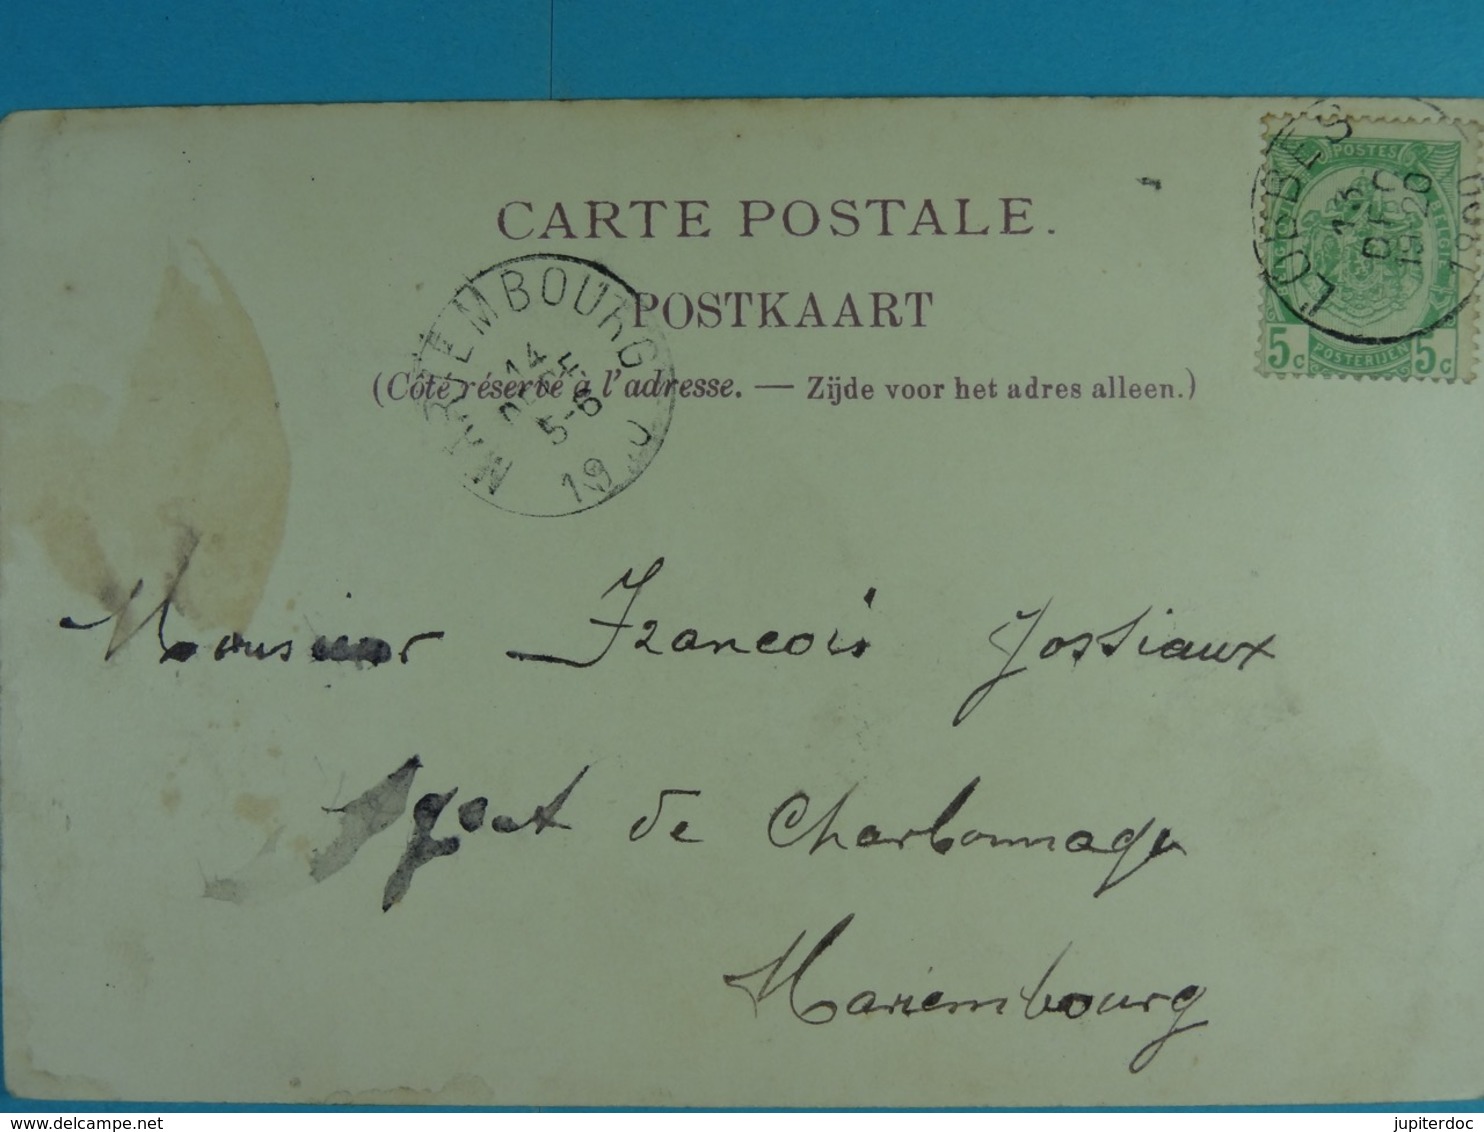 CARTE POSTALE.
POSTKAART
(Côté réservé à l'adresse. — Zijde voor het adres alleen.)
POSTES
5c POSTERIJEN 5c
LOBBES
13
DEC
MARIEMBOURG
14
DEC
5-6
Monsieur Francois Jossiaux
Agent de Charbonnage
Mariembourg
delcampe.net
jupiterdoc